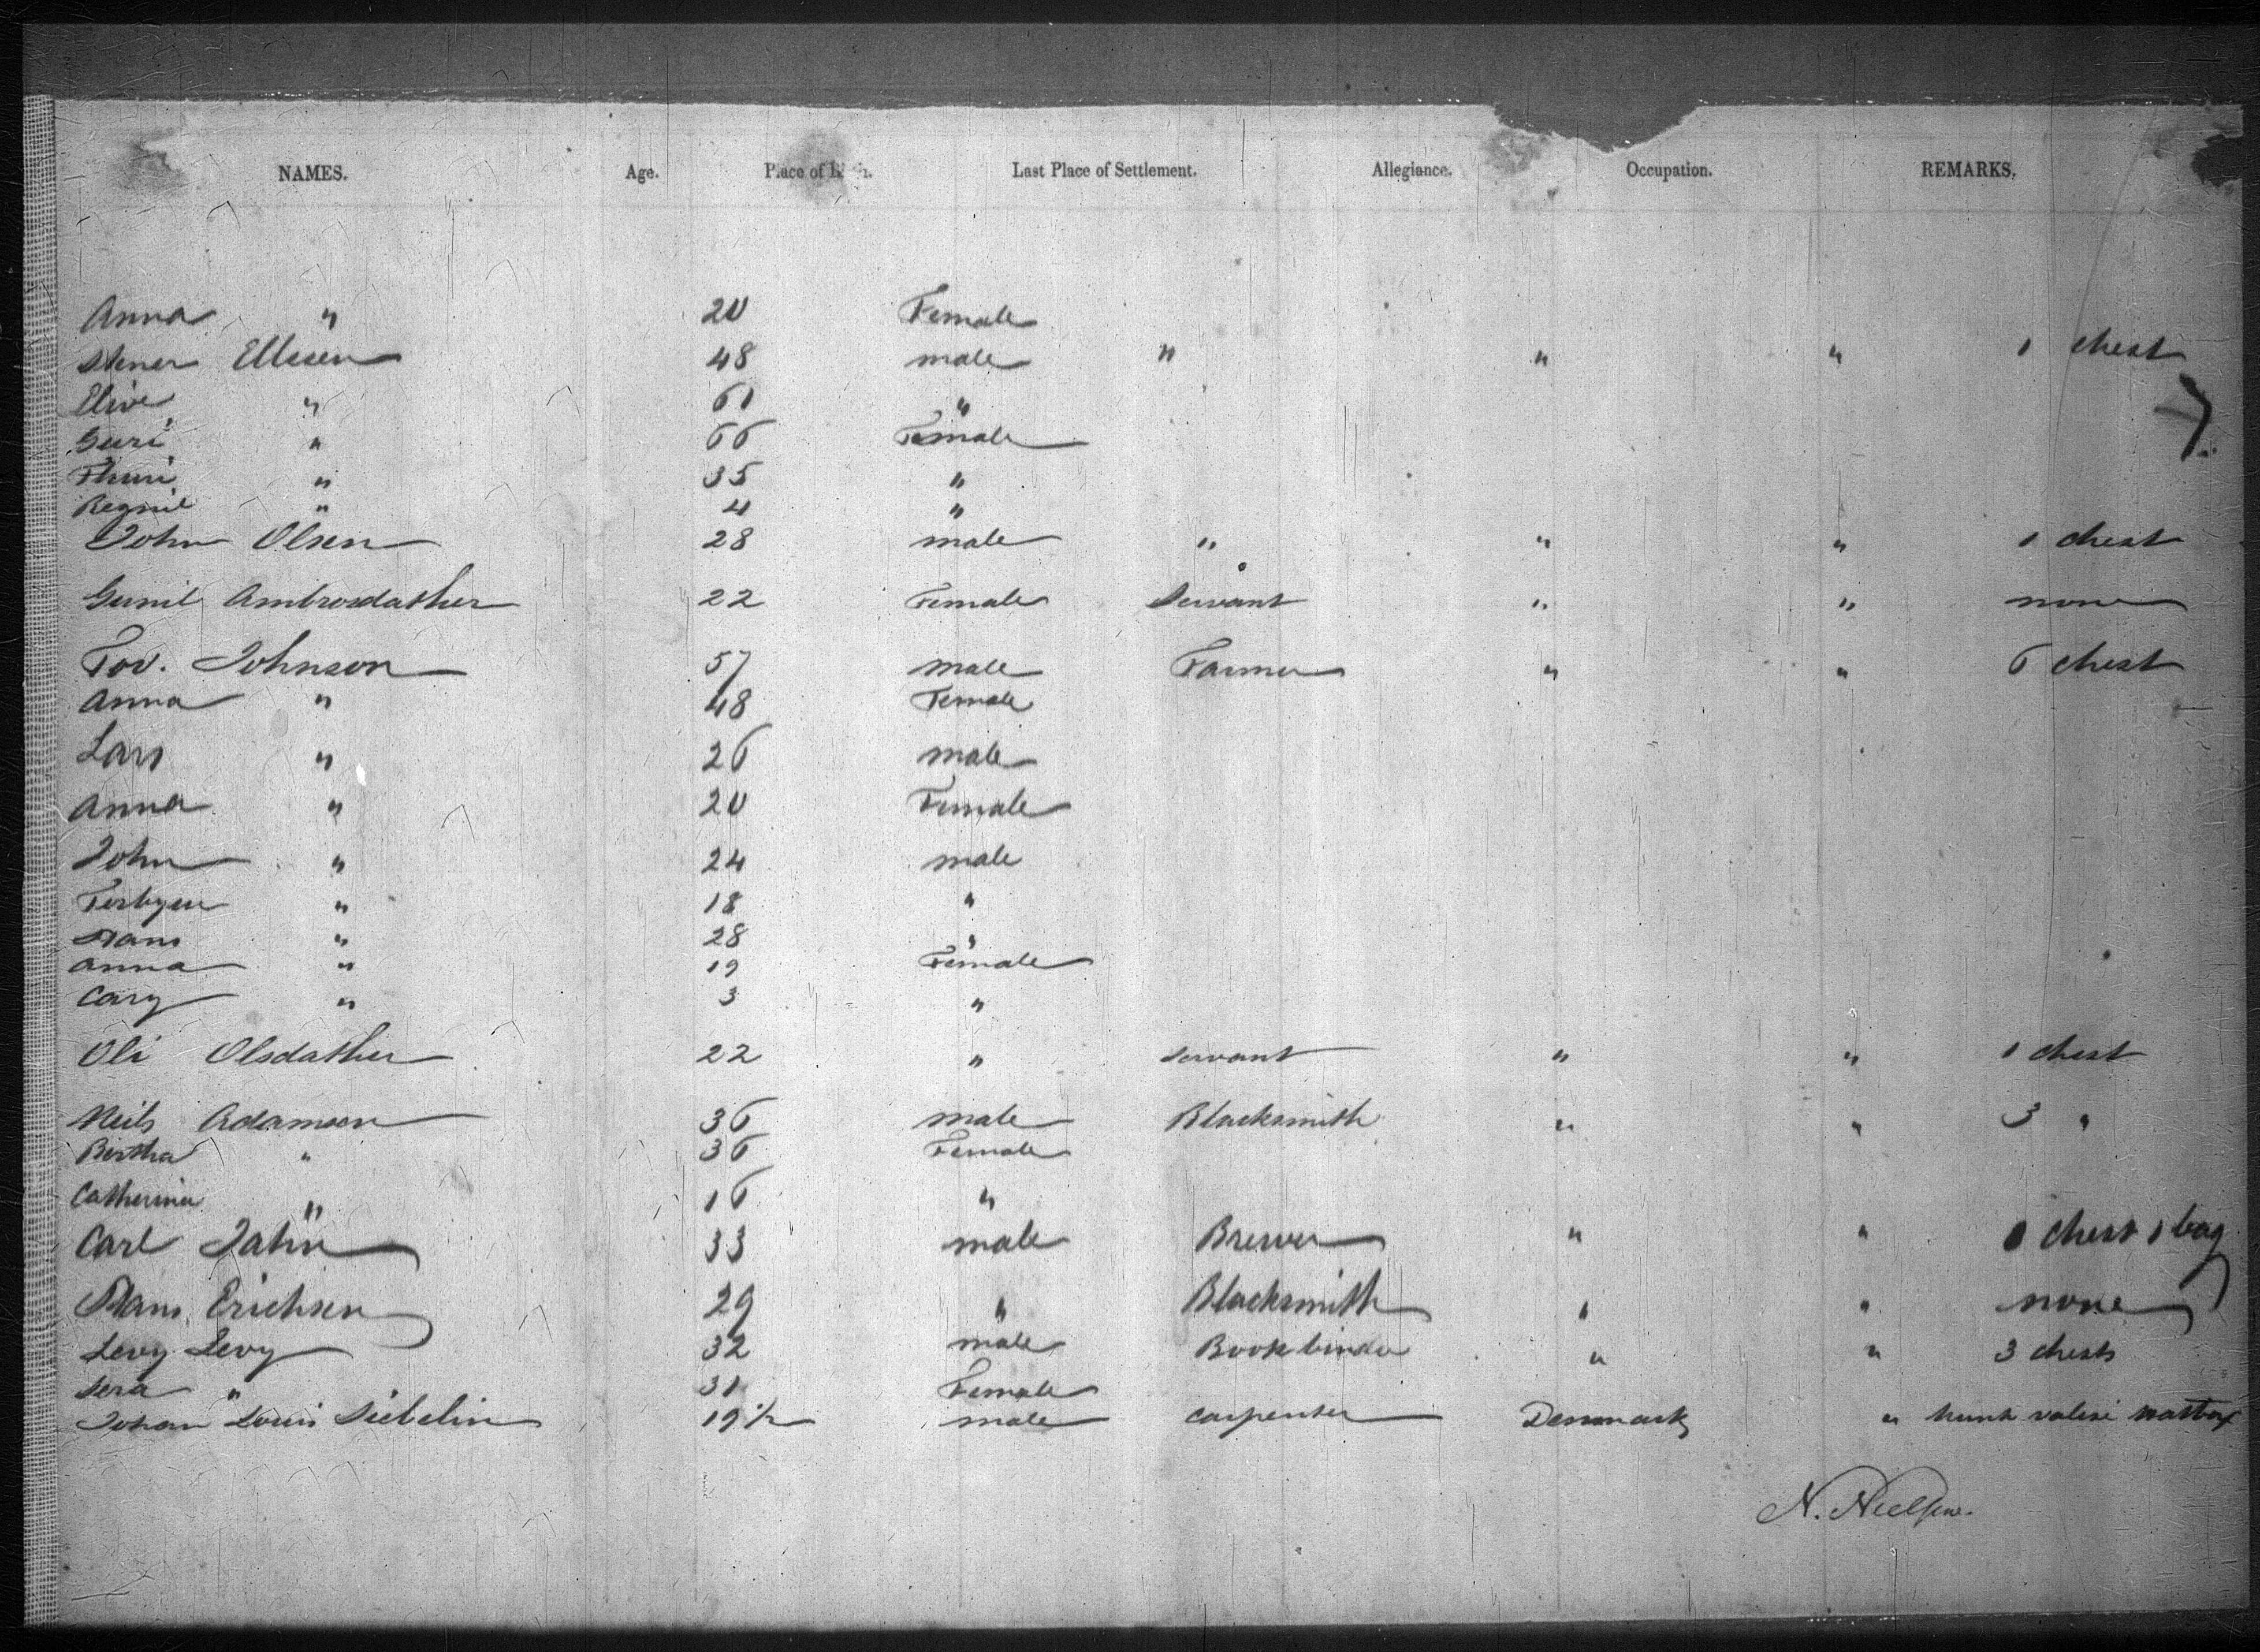 NAMES. Age. Place of Last Place of Settlement. Allegiance. Occupation. REMARKS.
Anna " 20 Female
Ellesen 48 male " " " 1 chest
Elive " 61 "
Guri " 66 Female
Thuri " 35 "
Regnil " 4 "
John Olsen 28 male " " " 1 chest
Gunil Ambrosdather 22 Female Servant " " none
Tov. Johnson 57 male Farmer " " 6 chest
Anna " 48 Female
Lars " 26 male
Anna " 20 Female
John " 24 male
" 18 "
Hans " 28 "
Anna " 19 Female
Cary " 3 "
Oli Olsdather 22 " servant " " 1 chest
Neils Adamsen 36 male Blacksmith " " 3 "
Bertha " 36 Female
Catherina " 16 "
Carl Jahn 33 male Brewer " " 1 chest 1 bag
Hans Erichsen 29 " Blacksmith " " none
Levy Levy 32 male Bookbinder " " 3 chests
Sera " 31 Female
Johan Louis Siebelin 19 1/2 male carpenter Denmark " valise
N. Nielsen.